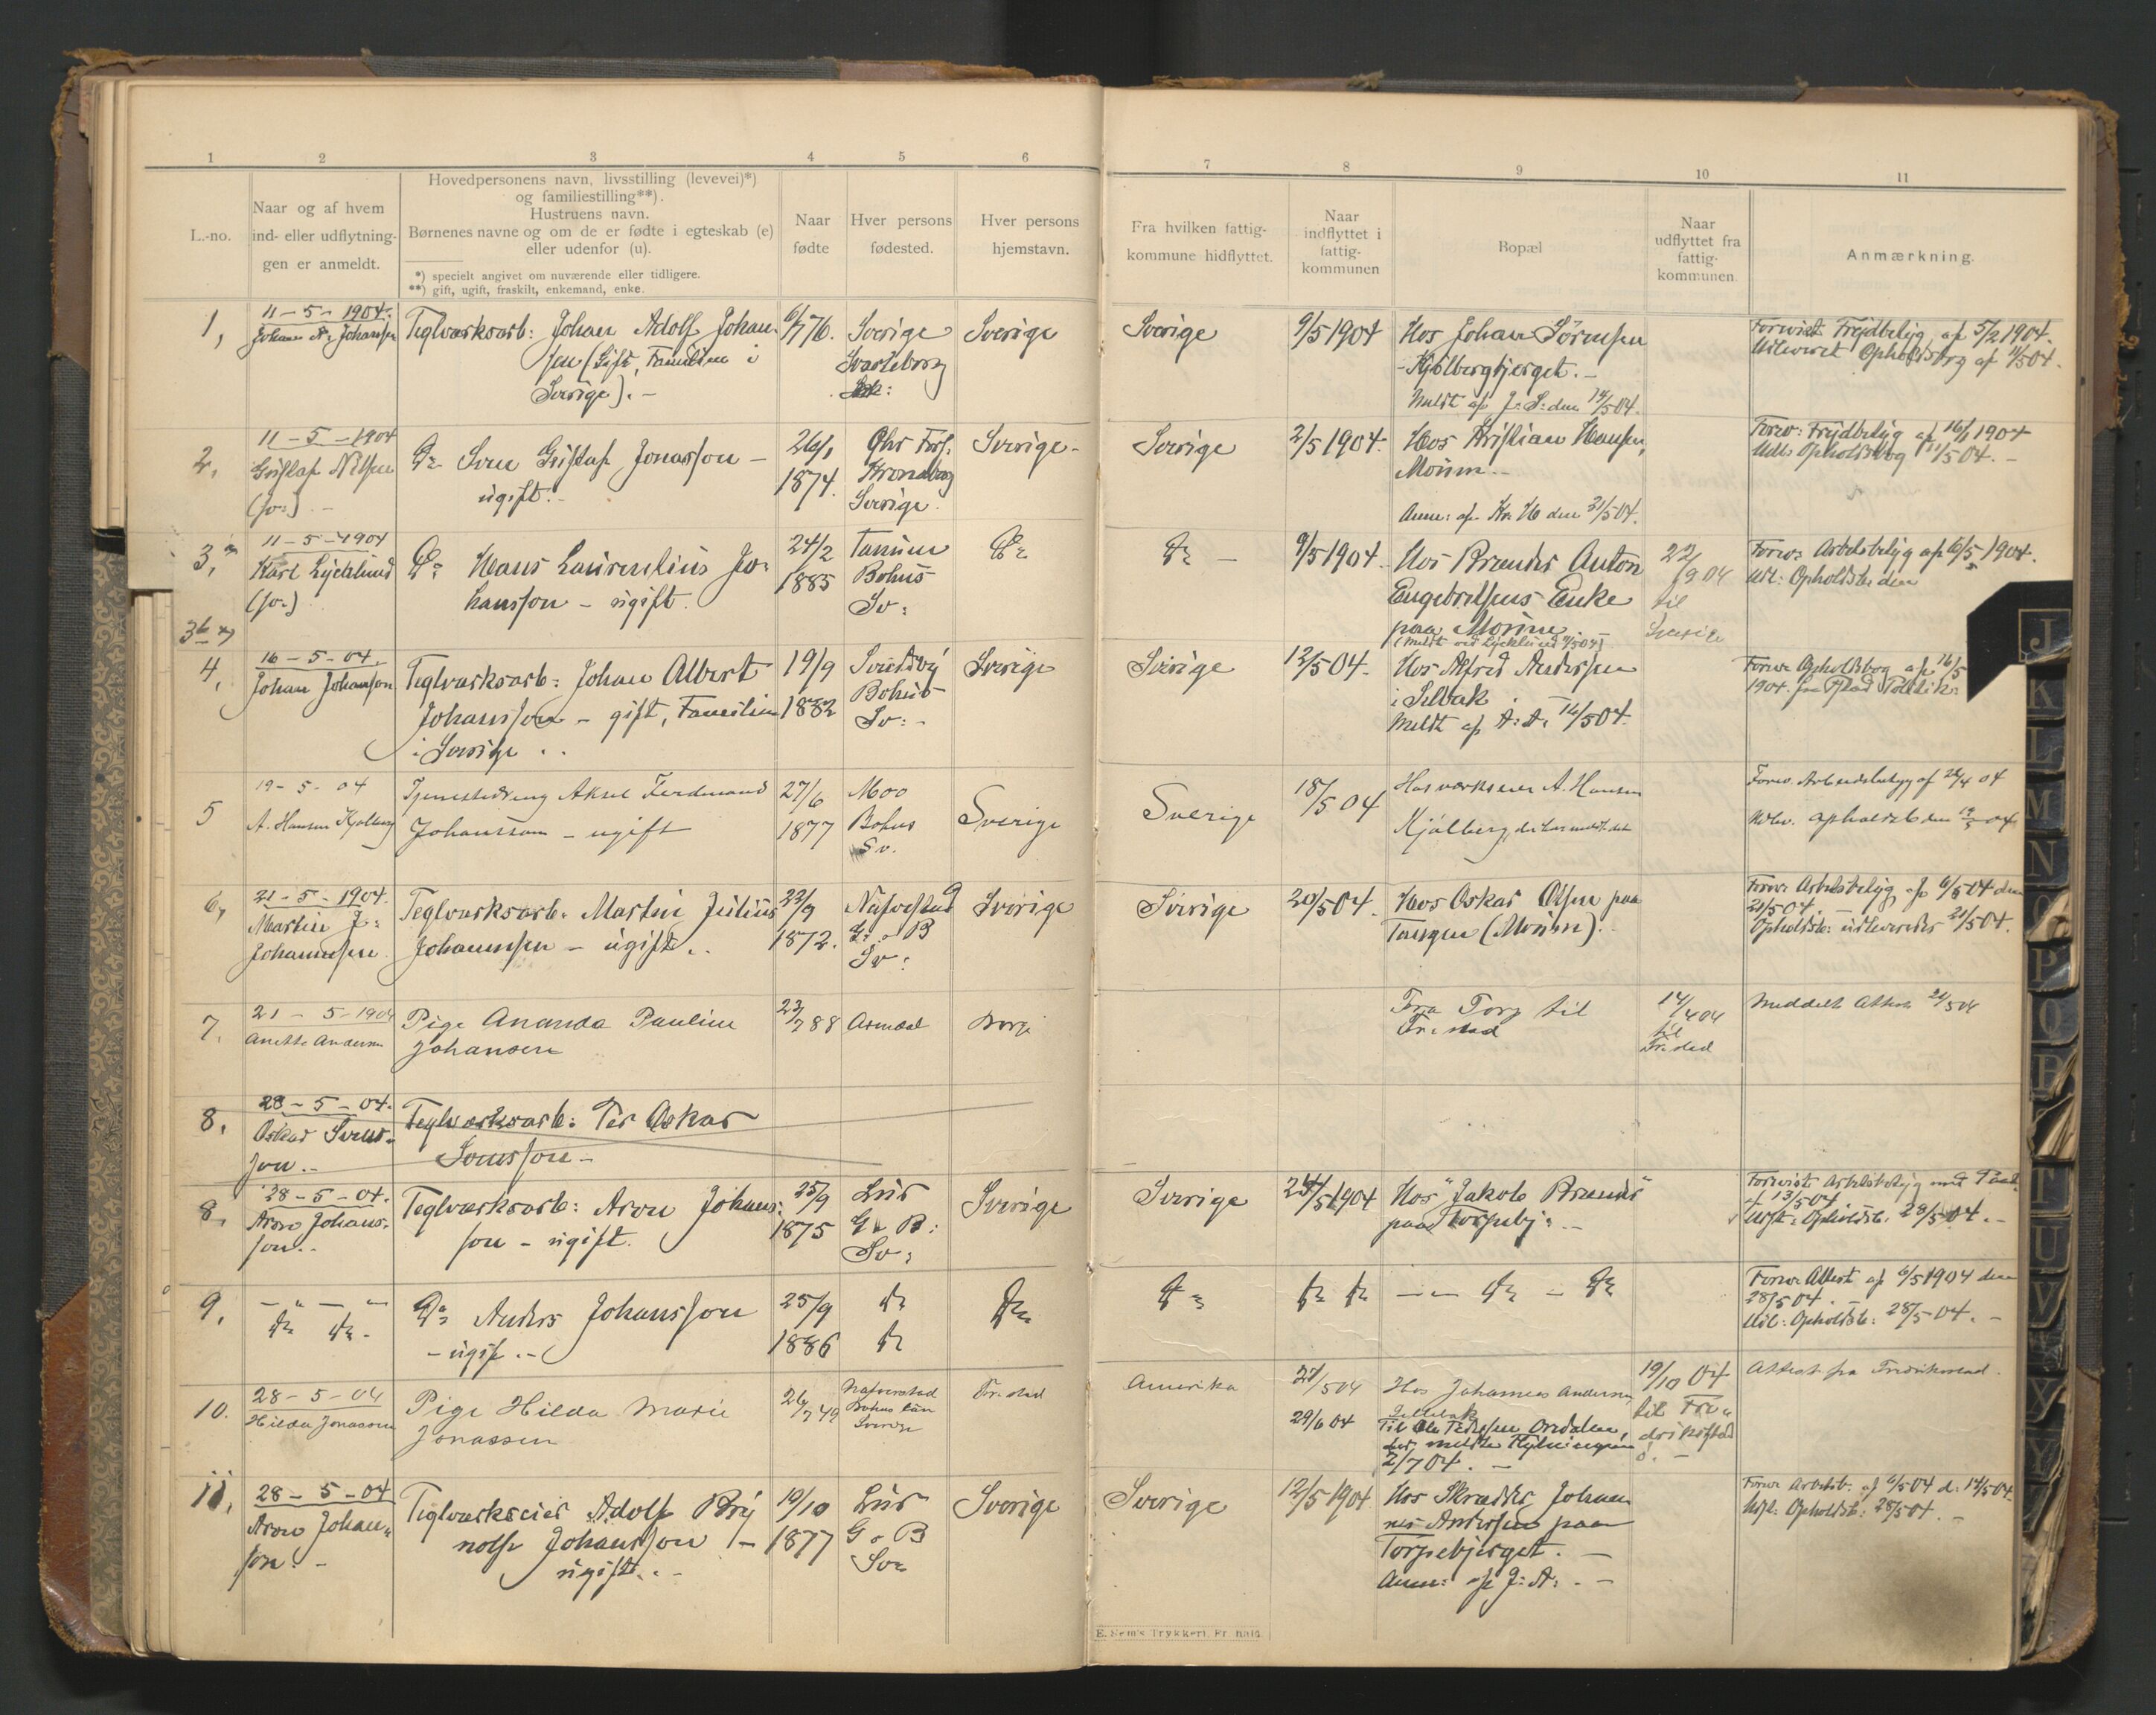 1 2 3 4 5 6 7 8 9 10 11
L.-no.
Naar og af hvem
ind- eller udflytnin-
gen er anmeldt.
Hovedpersonens navn, livsstilling (levevei)*)
og familiestilling**).
Hustruens navn.
Børnenes navne og om de er fødte i egteskab (e)
eller udenfor (u).
*) specielt angivet om nuværende eller tidligere.
**) gift, ugift, fraskilt, enkemand, enke.
Naar
fødte
Hver persons
fødested.
Hver persons
hjemstavn.
Fra hvilken fattig-
kommune hidflyttet.
Naar
indflyttet i
fattig-
kommunen
Bopæl
Naar
udflyttet fra
fattig-
kommunen
Anmærkning.
1,
11-5-1904.
Johan A. Johansen
Teglværksarb: Johan Adolf Johan-
sen (Gift, Familien i
Sverige). -
6/7 76.
Sverige
Svarteborg
Sverige
Sverige
9/5 1904
Hos Johan Sørensen
- Kjølbergbjerget. -
Meldt af J: S: den 14/5 04.
Forevist Frejdbetyg af 5/2 1904.
Udleveret Opholdsbog af 11/5 04.
2,
11-5-1904
Gustaf Nilsen
(sv:) -
Do Sven Gustaf Jonasson -
ugift. -
26/1
1874.
Ohs Fors.
Kronoberg
Sverige
Sverige -
Sverige
2/5 1904.
Hos Kristian Hansen,
Moum. -
Anm: af Kr. H den 21/5 04.
Forev: Frejdbetyg af 16/1 1904
Udl: Opholdsbog 11/5 04. -
3,
11-5-1904
Karl Lycklund
(sv:)
Do Hans Laurentius Jo-
hansson - ugift.
24/2
1885
Tanum
Bohus
Sv:
Do
Do -
9/5 1904.
Hos Brændes Anton
Engebretsens Enke
paa Moum. -
(Meldt ved Lycklund 11/5 04)
22/
9 04
til
Sverige
Forev: Arbetsbetyg af 6/5 1904.
Udl: Opholdsb: den
3b
4,
16-5-04
Johan Johansson
Teglværksarb: Johan Albert
Johansson - gift, Familien
i Sverige . .
19/9
1882
Bohus
Sv: -
Sverige
Sverige
12/5 04.
Hos Alfred Andersen
i Selbak
Meldt af A: A. 14/5 04.
Forev: Opholdsbog af 16/5
1904. fra
5
19-5-04
A. Hansen Kjølberg
Tjenestedreng Aksel Ferdinand
Johansson - ugift
27/6
1877
Moo
Bohus
Sv.
Sverige
Sverige
18/5 04
Hos værkseier A. Hansen
Kjølberg,
Forev. Arbeidsbetyg af 26/4 04
Udlev. opholdsb den 19/5 04
6,
21-5-1904.
Martin J:
Johannesen
Teglværksarb. Martin Julius
Johannesen - ugift. .
22/9
1872.
Nafvestad
G: o B
Sv:
Sverige
Sverige
20/5 04.
Hos Oskar Olsen paa
Tangen (Moum).
Forev: Arbetsbetyg af 6/5 04 den
21/5 04. -
Opholdsb: udleveredes 21/5 04.
7.
21-5-1904
Anette Andersen
Pige Ananda Pauline
Johansen
23/7 88
Borge
Fra Torp til
Fr. stad
14/4 04
til
Fr. stad
Meddelt attest 21/5 04
8.
28-5-04.
Oskar Svens-
son. -
Teglværksarb: Per Oskar
Svensson -
8.
28-5-04.
Aron Johans-
son. -
Teglværksarb: Aron Johans-
son - ugift.
25/9
1875
Lur
G o B:
Sv:
Sverige
Sverige
24/5 1904
Hos "Jakob Brænds"
paa Torpebj: -
Forevist Arbetsbetyg
af 13/5 04.
Udst: Opholdsb. 28/5 04. -
9.
- " - "
Do Do -
Do Anders Johansson
- ugift. -
25/9
1886
Do
Do
Do
Do
Do Do
- " - Do - Do
Forev: Attest af 6/5 1904 den
28/5 04. -
Udl: Opholdsb: 28/5 04. -
10.
28-5-04
Hilda Jonassen
Pige Hilda Marie
Jonassen
Nafverstad
Bohus län
Sverige
Fr. stad
Amerika
27/5 04
29/6 04
Hos Johannes Andersen,
Sellebak
Til Ole Pedersen Ordalen,
der meldte Flytningen
2/7 04. -
19/10 04
til Fre-
drikstad
Attest fra Fredrikstad.
11.
28-5-04
Aron Johan-
son: -
Teglværkseier Adolf Bry
nolf Johansson -
ugift. . -
19/10
1877
Lur
G o B
Sv:
Sverige
Sverige
12/5 1904
Hos Skrædder Johan
nes Andersen paa
Torpebjerget. -
Anm: af J: A: . -
Forev: Arbetsb. af 6/5 04 d: 14/5 04.
Udst: Opholdsb: 28/5 04. -
E. Sem's Trykkeri, Fr. hald
J
K
L
M
N
O
P
Q
R
T
U
V
X
Y